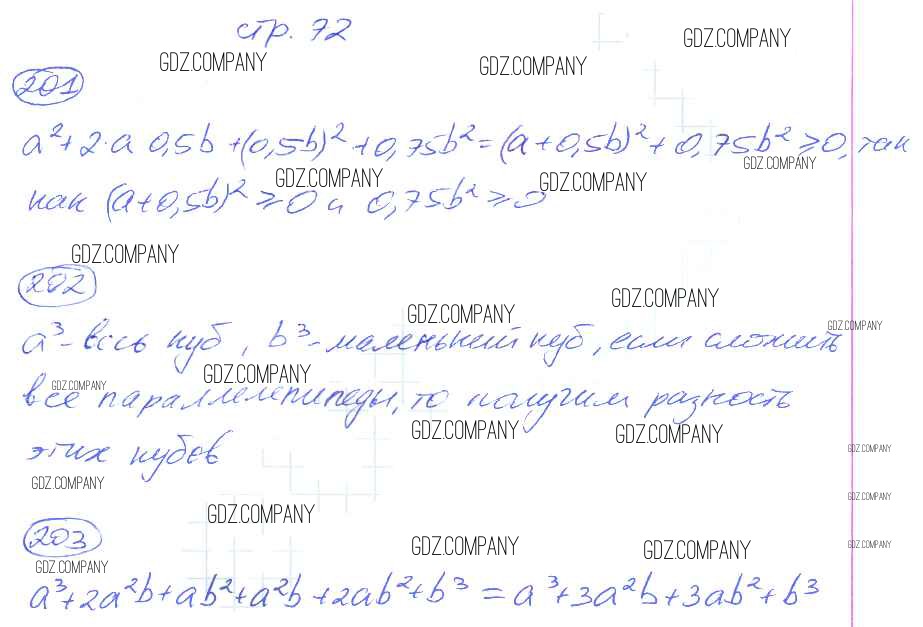 стр. 72
GDZ.COMPANY GDZ.COMPANY GDZ.COMPANY
201
a² + 2·a 0,5b + (0,5b)² + 0,75b² = (a + 0,5b)² + 0,75b² ≥ 0, так
GDZ.COMPANY GDZ.COMPANY GDZ.COMPANY
как (a + 0,5b)² ≥ 0 и 0,75b² ≥ 0
GDZ.COMPANY
202
GDZ.COMPANY GDZ.COMPANY GDZ.COMPANY
a³ - весь куб, b³ - маленький куб, если сложить
GDZ.COMPANY GDZ.COMPANY
все параллелепипеды, то получим разность
GDZ.COMPANY GDZ.COMPANY GDZ.COMPANY
этих кубов
GDZ.COMPANY GDZ.COMPANY
GDZ.COMPANY
203
GDZ.COMPANY GDZ.COMPANY GDZ.COMPANY
GDZ.COMPANY
a³ + 2a²b + ab² + a²b + 2ab² + b³ = a³ + 3a²b + 3ab² + b³